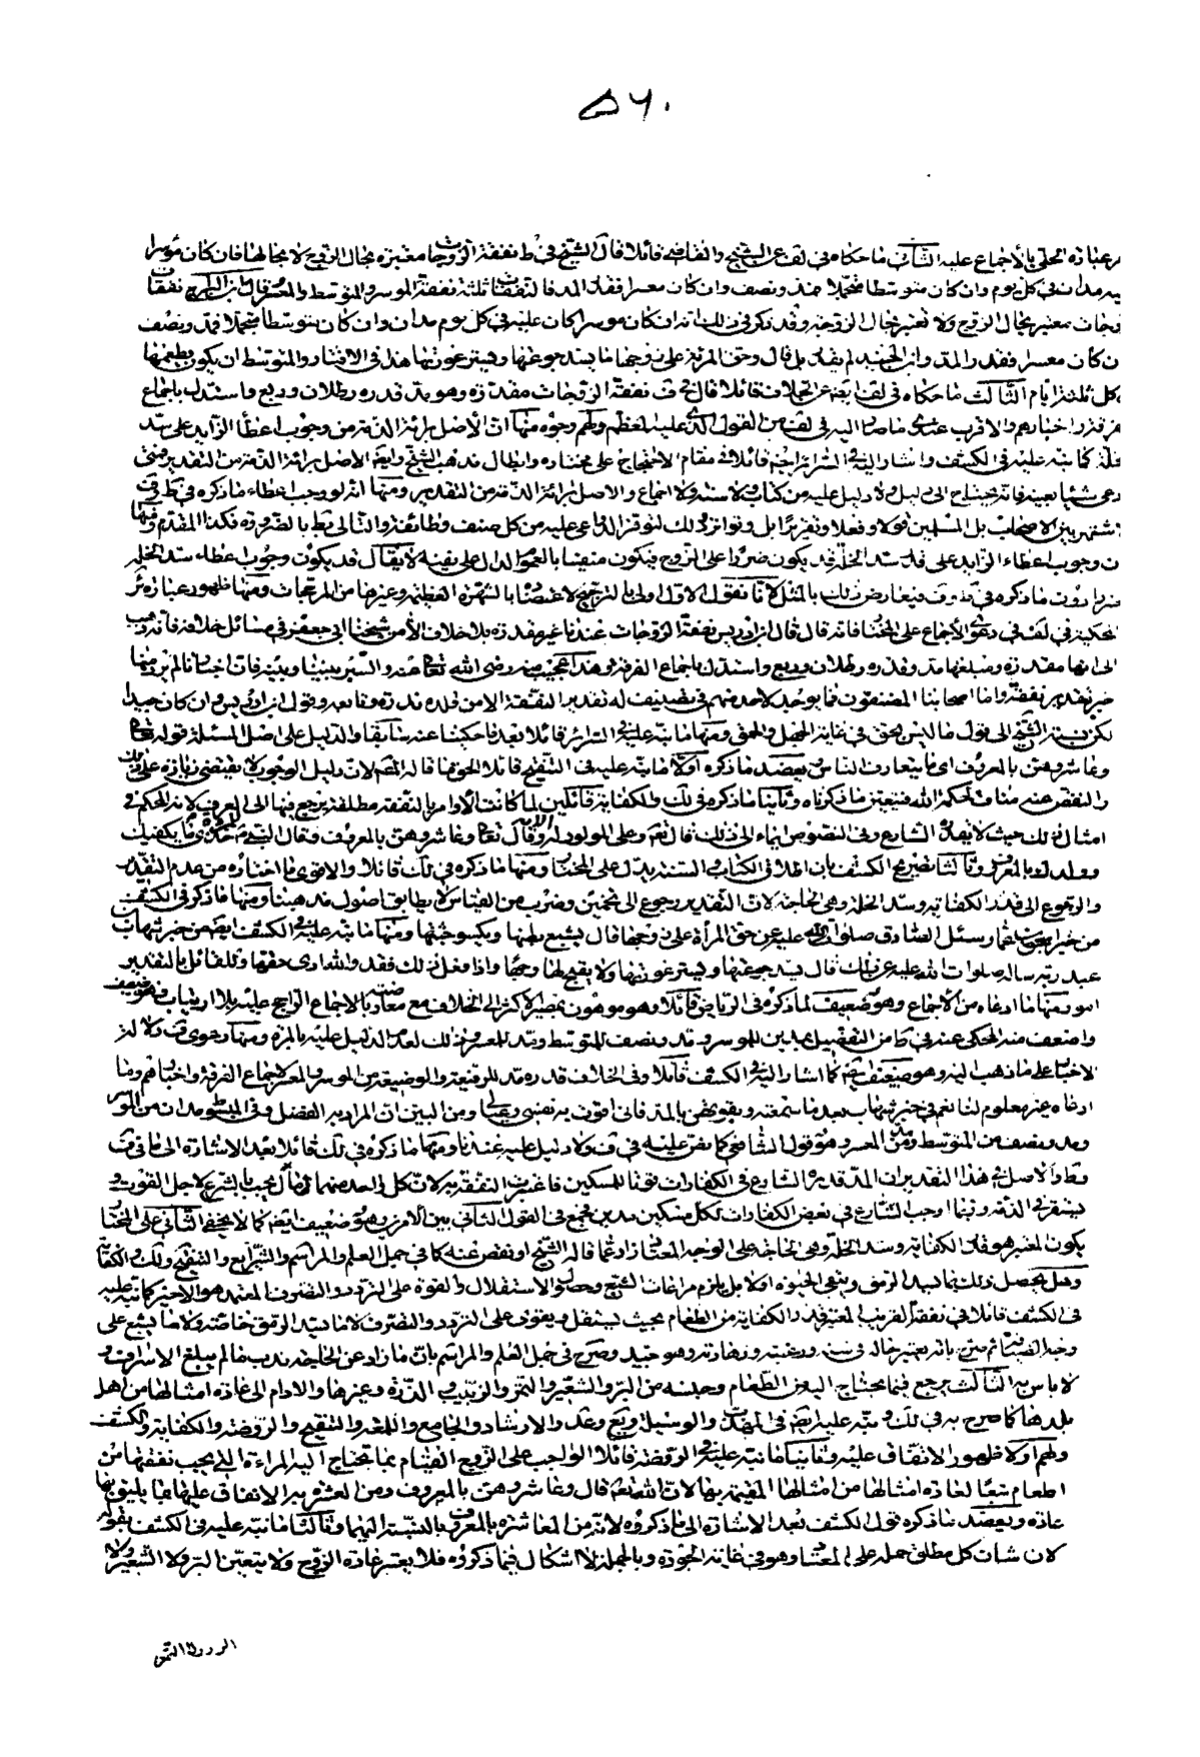 ٥٦٠
عبارة الحلي بالأجماع عليه الثاني ما حكاه في لف عن الشيخ والقاضي قائلا قال الشيخ في ط نفقة الزوجات معتبرة بحال الزوج لا بحالها فان كان موسرا
مدان في كل يوم وان كان متوسطا متجملا فمد ونصف وان كان معسرا فقد المد فالنفقات ثلثة نفقة الموسر والمتوسط والمعسر قال ابن البراج نفقة
الزوجات معتبر بحال الزوج ولا تعتبر بحال الزوجة وقد ذكر في ذلك انه ان كان موسرا كان عليه في كل يوم مدان وان كان متوسطا متجملا فمد ونصف
ن كان معسرا فقدر المد وابن الجنيد لم يقدر بل قال وحق المرئة على زوجها ما يسد جوعتها ويستر عورتها هذا في الاقتار والمتوسط ان يكون يطعمها
كل ثلثة ايام الثالث ما حكاه في لف ايضا عن الخلاف قائلا قال في ف نفقة الزوجات مقدرة وهو مد قدره رطلان وربع واستدل باجماع
الفرقة واخبارهم والاقرب عندي ما صار اليه في لف من القول الذي عليه المعظم ولهم وجوه منها ان الأصل برائة الذمة من وجوب اعطأ الزايد على سد
الخلة كما نبه عليه في الكشف واشار اليه في السرائر ايضا قائلا في مقام الاحتجاج على مختاره وابطال مذهب الشيخ وايضا الاصل برائة الذمة من التقدير فمن
دعى شيئا بعينه فانه يحتاج الى دليل ولا دليل عليه من كتاب ولا سنة ولا اجماع والاصل برائة الذمة من التقدير ومنها انه لو وجب اعطاء ما ذكره في ط وف
اشتهر بين الاصحاب بل المسلمين قولا وفعلا وتقريرا بل وتواتر ذلك لتوفر الدواعي عليه من كل صنف وطائفة والتالي بط بالضرورة فكذا المقدم ومنها
ن وجوب اعطاء الزايد على قدر سد الخلة قد يكون ضررا على الزوج فيكون منفيا بالعموم الدال على نفيه لا يقال قد يكون وجوب اعطاء سد الخلة
ضررا دون ما ذكره في ط وف فيتعارض ذلك بالمثل لانا نقول الاول اولى بالترجيح لاعتضاده بالشهرة العظيمة وغيرها من المرجحات ومنها ظهور عبارة
المحكية في لف في دعوى الأجماع على المختار فانه قال قال ابن ادريس نفقة الزوجات عندنا غير مقدرة بلا خلاف الأمن شيخنا ابي جعفر في مسائل خلافه فانه ذهب
الى انها مقدرة ومبلغها مد وقدره رطلان وربع واستدل باجماع الفرقة وهذا عجيب منه رضي الله تعالى عنه والسبر بيننا وبينه فان اخبارنا لم يرد منها
خبر بتقدير نفقة واما اصحابنا المصنفون فما يوجد لاحد منهم في تصنيف له تقدير النفقة الا من قلده وتابعه وقول ابن ادريس وان كان جيدا
لكن نسبة الشيخ الى قول ما ليس بحق في غاية الجهل والحمق ومنها ما نبه عليه في السرائر قائلا بعد ما حكينا عنه سابقا والدليل على اصل المسئلة قوله تعالى
وعاشروهن بالمعروف اى ما يتعارف الناس ويعضد ما ذكره اولا ما نبه عليه في التنقيح قائلا الحق ما قاله
والنقص عنه مناف لحكمة الله فيتعين ما ذكرناه وثانيا ما ذكره في لك والكفاية قائلين لما كانت الأوامر بالنفقة مطلقة يرجع فيها الى العرف لانه المحكم في
امثال ذلك حيث لا يقدره الشارع وفي النصوص ايماء الى ذلك قال تعالى وعلى المولود له وقال تعالى وعاشروهن بالمعروف وقال النبي ص خذي ما يكفيك
وولدك بالمعروف وثالثا تصريح الكشف بان اطلاق الكتاب والسنة يدل على المختار ومنها ما ذكره في لك قائلا والاقوى ما اختاره من عدم التقدير
والرجوع الى قدر الكفاية وسد الخلة وهي الحاجة لان التقدير رجوع الى تخمين وضرب من القياس لا يطابق اصول مذهبنا ومنها ما ذكره في الكشف
من خبر اسحق بن عمار سئل الصادق صلوات الله عليه عن حق المرأة على زوجها قال يشبع بطنها ويكسو جثتها ومنها ما نبه عليه في الكشف ايضا من خبر شهاب
عبد ربه ساله صلوات الله عليه عن ذلك قال يسد جوعتها ويستر عورتها ولا يقبح لها وجها واذا فعل ذلك فقد والله ادى حقها وللقائل بالتقدير
امور منها ما ادعاه من الاجماع وهو ضعيف لما ذكره في الرياض قائلا وهو موهون بمصير الاكثر الى الخلاف مع معارضته بالاجماع الراجح عليه بلا ارتياب وهو ضعيف
واضعف منه المحكي عنه في ط من التفصيل بمدين للموسر ومد ونصف للمتوسط ومد للمعسر وذلك لعدم الدليل عليه بالمرة ومنها دعوى ف دلالة
الاخبار على ما ذهب اليه وهو ضعيف ايضا كما اشار اليه في الكشف قائلا وفي الخلاف قدره مد للرفيعة والوضيعة من الموسر والمعسر لاجماع الفرقة واخبارهم وما
ادعاه غير معلوم لنا نعم في خبر شهاب بعد ما سمعته ويقوتهن بالمد فاني اقوت به نفسي وعيالي ومن البين ان المراد به الفضل وفي المبسوط مدان من الموسر
ومد ونصف من المتوسط ومد من المعسر وهو قول الشافعي كما نص عليه في ف ولا دليل عليه عندنا ومنها ما ذكره في لك قائلا بعد الاشارة الى ما في ف
وط والاصل في هذا التقدير ان المد قدره الشارع في الكفارات قوتا للمسكين فاعتبرت النفقة به لان كل واحد منهما مال يجب بالشرع لاجل القوت و
يستقر في الذمة وربما اوجب الشارع في بعض الكفارات لكل مسكين مدين فجمع في القول الثاني بين الأمرين وهو ضعيف ايضا كما لا يخفى الثاني على المختار
يكون المعتبر هو قدر الكفاية وسد الخلة وهي الحاجة على الوجه المعتاد زاد عما قاله الشيخ او نقص عنه كما في جمل العلم والمراسم والسرائر والتنقيح ولك والكفاية
وهل يحصل ذلك بما يسد الرمق ويبقي الحيوة اولا بل يلزم مراعات الشبع وحصول الاستقلال والقوة على التردد والتصرف المعتمد هو الاخير كما نبه عليه
في الكشف قائلا في نفقة القريب المعتبر قدر الكفاية من الطعام بحيث يستقل ويقوى على التردد والتصرف لا ما يسد الرمق خاصة ولا ما يشبع على
وجه ثم صرح بانه يعتبر حاله في سنه ورغبته وزهادته وهو جيد وصرح في جمل العلم والمراسم بان ما زاد عن الحاجة ندب ما لم يبلغ الاسراف و
لا باس به الثالث يرجع فيما يحتاج اليه من الطعام وجنسه من البر والشعير والتمر والزبيب والذرة وغيرها والادام الى عادة امثالها من اهل
بلدها كما صرح به في لك ونبه عليه ايضا في المهذب والوسيلة ويع وعد والارشاد والجامع واللمعة والتنقيح والروضة والكفاية والكشف
ولهم اولا ظهور الاتفاق عليه وثانيا ما نبه عليه في الروضة قائلا الواجب على الزوج القيام بما تحتاج اليه المراءة التي يجب نفقتها من
اطعام تبعا لعادة امثالها من امثالها المقيمة بها لان الله تعالى قال وعاشروهن بالمعروف ومن العشرة به الانفاق عليها بما يليق بها
عادة ويعضد ما ذكره قول الكشف بعد الاشارة الى ما ذكروه لانه من المعاشرة بالمعروف بالنسبة اليها وثالثا ما نبه عليه في الكشف بقوله
لان شان كل مطلق حمله على المعتاد وهو في غاية الجودة وبالجملة لا اشكال فيما ذكروه فلا يعتبر عادة الزوج ولا يتعين البر ولا الشعير ولا